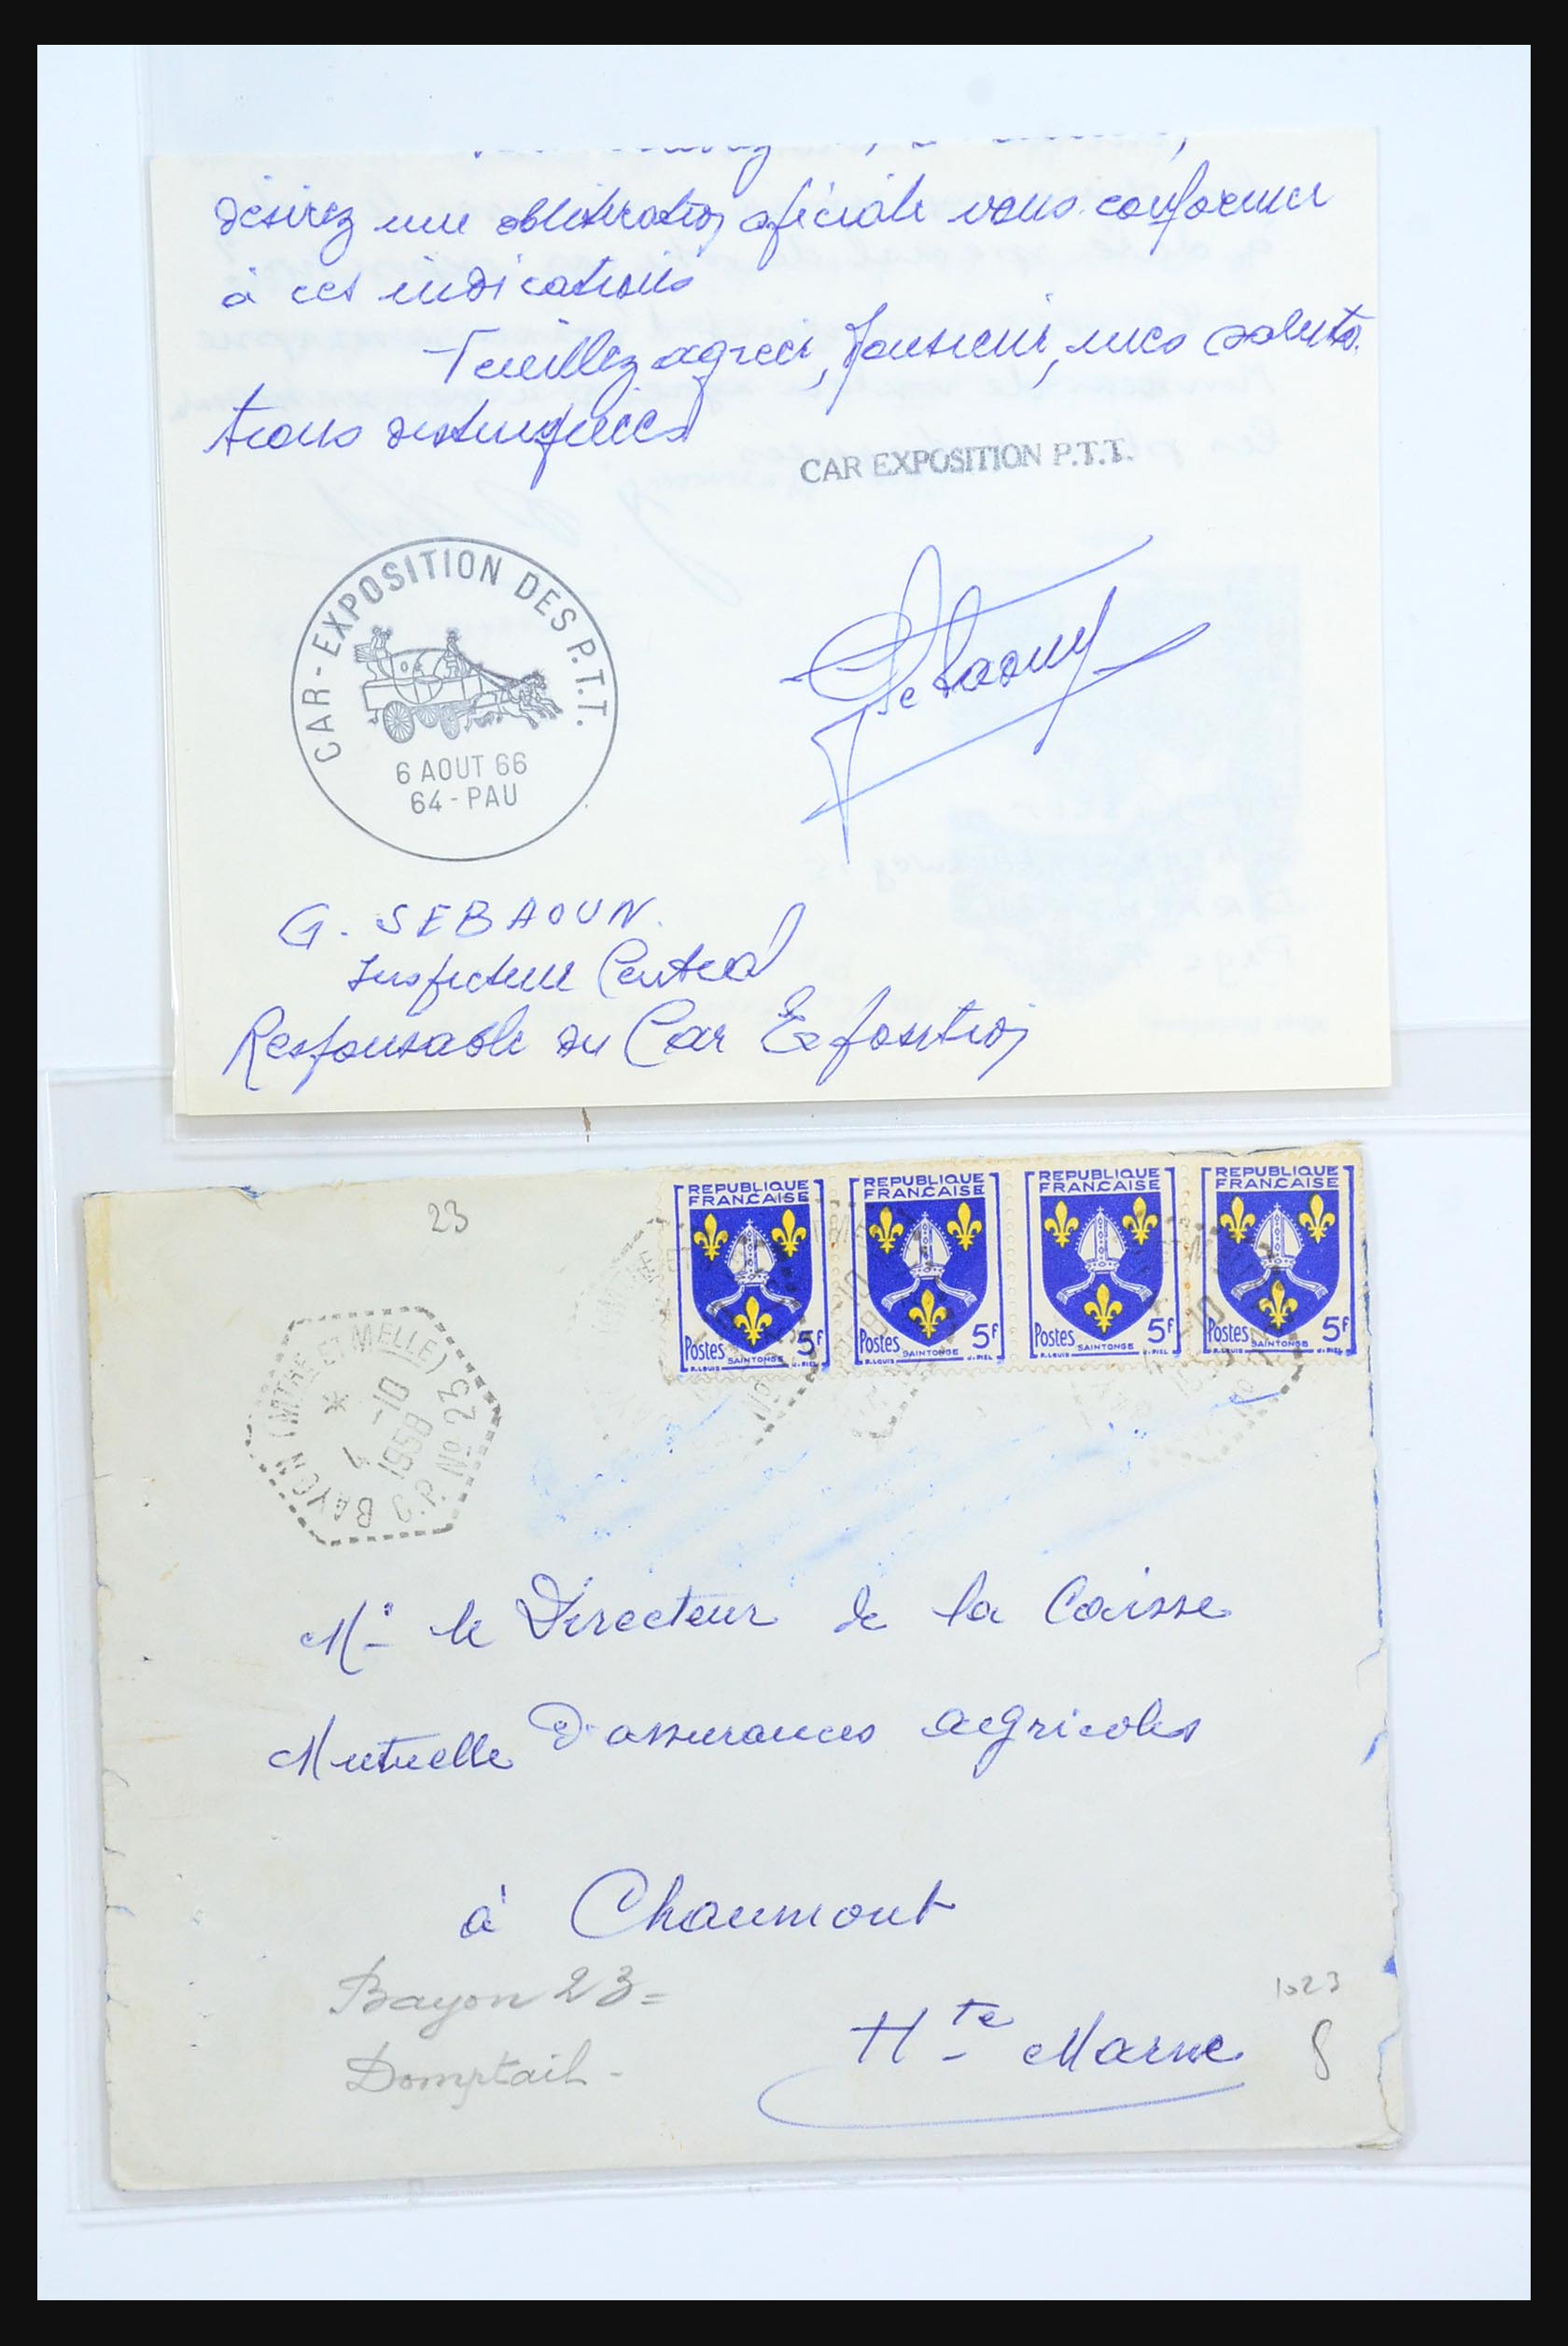 désirez une oblitération spéciale vous conformer
à ces indications
Veuillez agréer, Monsieur, mes saluta
tions distinguées
CAR EXPOSITION P.T.T.
CAR-EXPOSITION DES P.T.T.
6 AOUT 66
64-PAU
Sebaoun
G. SEBAOUN.
Inspecteur Central
Responsable du Car Exposition
23
REPUBLIQUE FRANÇAISE
Postes 5F
R.LOUIS SAINTONGE J.PIEL
REPUBLIQUE FRANÇAISE
Postes 5F
R.LOUIS SAINTONGE J.PIEL
REPUBLIQUE FRANÇAISE
Postes 5F
R.LOUIS SAINTONGE J.PIEL
REPUBLIQUE FRANÇAISE
Postes 5F
R.LOUIS SAINTONGE J.PIEL
BAYON (MTHE ET MELLE)
*
4 -10
1958
C.P. No 23
Mr le Directeur de la Caisse
Mutuelle d'assurances agricoles
à Chaumont
Bayon 23=
Domptail-
Hte Marne
1023
8